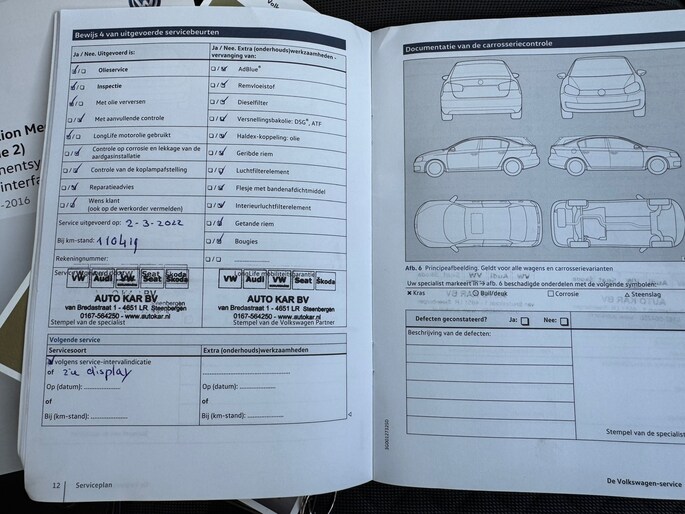 tion Me
e 2)
nentsy
interfa
-2016
Bewijs 4 van uitgevoerde servicebeurten
Ja / Nee. Uitgevoerd is:
Olieservice
Inspectie
Met olie verversen
Met aanvullende controle
LongLife motorolie gebruikt
Controle op corrosie en lekkage van de
aardgasinstallatie
Controle van de koplampafstelling
Reparatieadvies
Wens klant
(ook op de werkorder vermelden)
Service uitgevoerd op: 2-3-2022
Bij km-stand: 110419
Rekeningnummer:
VW Audi VW Seat Skoda
Seat
AUTO KAR BV
van Bredastraat 1 - 4651 LR Steenbergen
0167-564250 - www.autokar.nl
Stempel van de specialist
Ja / Nee. Extra (onderhouds)werkzaamheden -
vervanging van:
AdBlue®
Remvloeistof
Dieselfilter
Versnellingsbakolie: DSG®, ATF
Haldex-koppeling: olie
Geribde riem
Luchtfilterelement
Flesje met bandenafdichtmiddel
Interieurluchtfilterelement
Getande riem
Bougies
LongLife mobiliteitsgarantie
VW Audi VW Seat Skoda
Seat
AUTO KAR BV
van Bredastraat 1 - 4651 LR Steenbergen
0167-564250 - www.autokar.nl
Stempel van de Volkswagen Partner
Volgende service
Servicesoort
volgens service-intervalindicatie
of zie display
Op (datum):
of
Bij (km-stand):
Extra (onderhouds)werkzaamheden
Op (datum):
of
Bij (km-stand):
12 Serviceplan
Documentatie van de carrosseriecontrole
Afb. 6 Principeafbeelding. Geldt voor alle wagens en carrosserievarianten
Uw specialist markeert in → afb. 6 beschadigde onderdelen met de volgende symbolen:
× Kras
○ Buil/deuk
□ Corrosie
△ Steenslag
Defecten geconstateerd? Ja: Nee:
Beschrijving van de defecten:
Stempel van de specialist
De Volkswagen-service